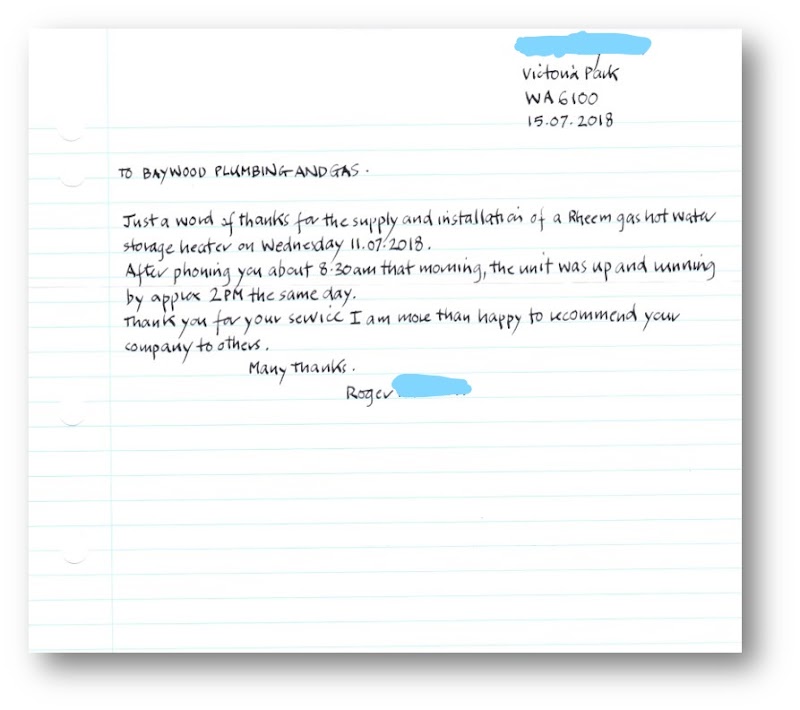 Victoria Park
WA 6100
15.07.2018
TO BAYWOOD PLUMBING AND GAS.
Just a word of thanks for the supply and installation of a Rheem gas hot water
storage heater on Wednesday 11.07.2018.
After phoning you about 8.30am that morning, the unit was up and running
by approx 2PM the same day.
Thank you for your service I am more than happy to recommend your
company to others.
Many Thanks.
Roger